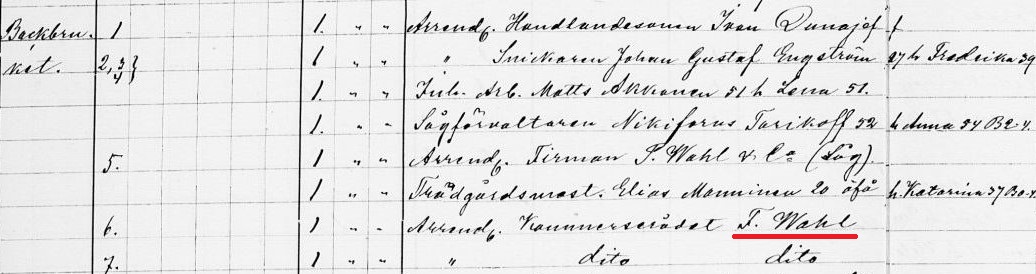 Backbru. 1 1. " " Arrend. Handlandesonen Ivan Dunajef
kst. 2, 3/4} 1 " " " Snickaren Johan Gustaf Engström 27 h Fredrika 39
1. " " Inh. Arb. Matts Akkanen 51 h Lena 51.
1. " " Sågförvaltaren Nikiforus Tarikoff 52 h Anna 54 B2-4
5. 1 " " Arrend. Firman P. Wahl & Co (Såg).
1 " " Trädgårdsmast. Elias Manninen 20 öfå h. Katarina 37
6. 1 " " Arrend. Kommerserådet F. Wahl
7. 1 " " " dito dito